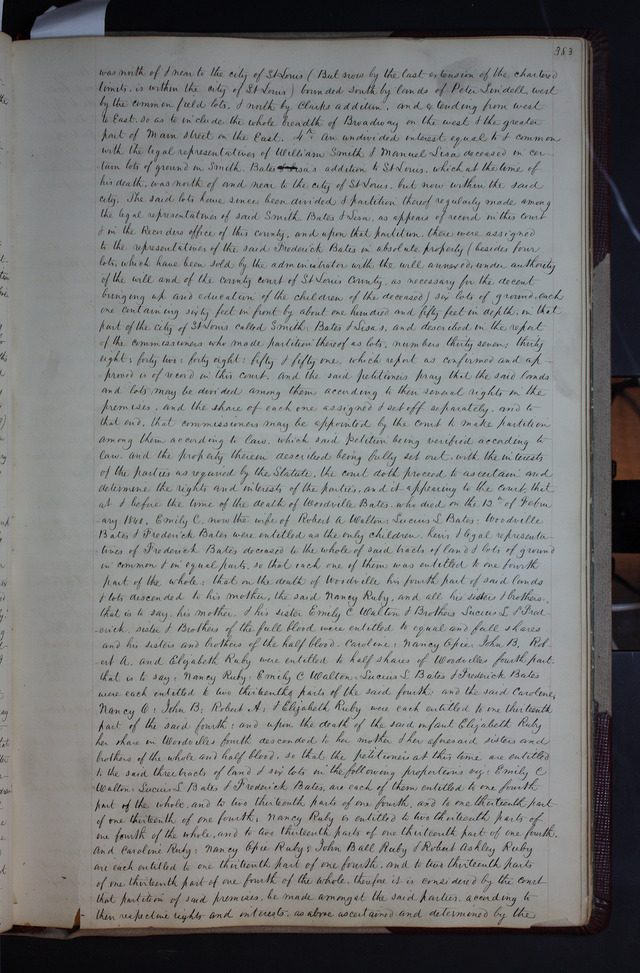 383
was north of & near to the city of St Louis (But now by the last extension of the chartered
limits, is within the city of St Louis) bounded south by lands of Peter Lindell, west
by the common field lots, & north by Clarks addition, and extending from west
to East, so as to include the whole breadth of Broadway on the west & the greater
part of Main street on the East. 4th An undivided interest equal to & common
with the legal representatives of William Smith & Manuel Lisa deceased in cer-
tain lots of ground in Smith, Bates & Lisa's addition to St Louis, which at the time of
his death, was north of and near to the city of St Louis, but now within the said
city. The said lots have since been divided & partition thereof regularly made among
the legal representatives of said Smith Bates & Lisa, as appears of record in this court
& in the Recorders office of this county, and upon that partition there were assigned
to the representatives of the said Frederick Bates in absolute property (besides four
lots, which have been sold by the administrator with the will annexed, under authority
of the will and of the county court of St Louis County, as necessary for the decent
bringing up and education of the children of the deceased) six lots of ground, each
one containing sixty feet in front by about one hundred and fifty feet in depth, in that
part of the city of St Louis called Smith, Bates & Lisa's, and described in the report
of the commissioners who made partition thereof as lots, numbers thirty seven; thirty
eight; forty two; forty eight; fifty & fifty one, which report as confirmed and ap-
proved is of record in this court. and the said petitioners pray that the said lands
and lots may be divided among them according to their several rights in the
premises, and the share of each one assigned & set off separately, and to
that end, that commissioners may be appointed by the court to make partition
among them according to law, which said Petition being verified according to
law and the property therein described being fully set out, with the interests
of the parties as required by the Statute, the court doth proceed to ascertain and
determine the rights and interests of the parties, and it appearing to the court, that
at & before the time of the death of Woodville Bates, who died on the 12th of Febru
-ary 1840, Emily C. now the wife of Robert A Walton; Lucius L Bates; Woodville
Bates & Frederick Bates were entitled as the only children, heirs & legal representa-
tives of Frederick Bates deceased to the whole of said tracts of land & lots of ground
in common & in equal parts, so that each one of them was entitled to one fourth
part of the whole; that on the death of Woodville his fourth part of said lands
& lots descended to his mother, the said Nancy Ruby, and all his sisters & brothers,
that is to say, his mother & his sister Emily C Walton & Brothers Lucius L & Fred-
-erick, sister & Brothers of the full blood were entitled to equal and full shares
and his sisters and brothers of the half blood. Caroline; Nancy Opie; John B, Rob-
ert A. and Elizabeth Ruby were entitled to half shares of Woodvilles fourth part.
that is to say; Nancy Ruby; Emily C Walton; Lucius L Bates & Frederick Bates
were each entitled to two thirteenths parts of the said fourth; and the said Caroline,
Nancy O; John B; Robert A; & Elizabeth Ruby were each entitled to one thirteenth
part of the said fourth; and upon the death of the said infant Elizabeth Ruby
her share in Woodvilles fourth descended to her mother & her aforesaid sisters and
brothers of the whole and half blood. so that the petitioners at this time are entitled
to the said three tracts of land & six lots in the following proportions viz; Emily C
Walton; Lucius L Bates & Frederick Bates, are each of them entitled to one fourth
part of the whole, and to two thirteenth parts of one fourth, and to one thirteenth part
of one thirteenth of one fourth; Nancy Ruby is entitled to two thirteenth parts of
one fourth of the whole, and to two thirteenth parts of one thirteenth part of one fourth.
And Caroline Ruby; Nancy Opie Ruby; John Ball Ruby & Robert Ashley Ruby
are each entitled to one thirteenth part of one fourth, and to two thirteenth parts
of one thirteenth part of one fourth of the whole. therefore it is considered by the court
that partition of said premises, be made amongst the said parties, according to
their respective rights and interests, as above ascertained and determined by the